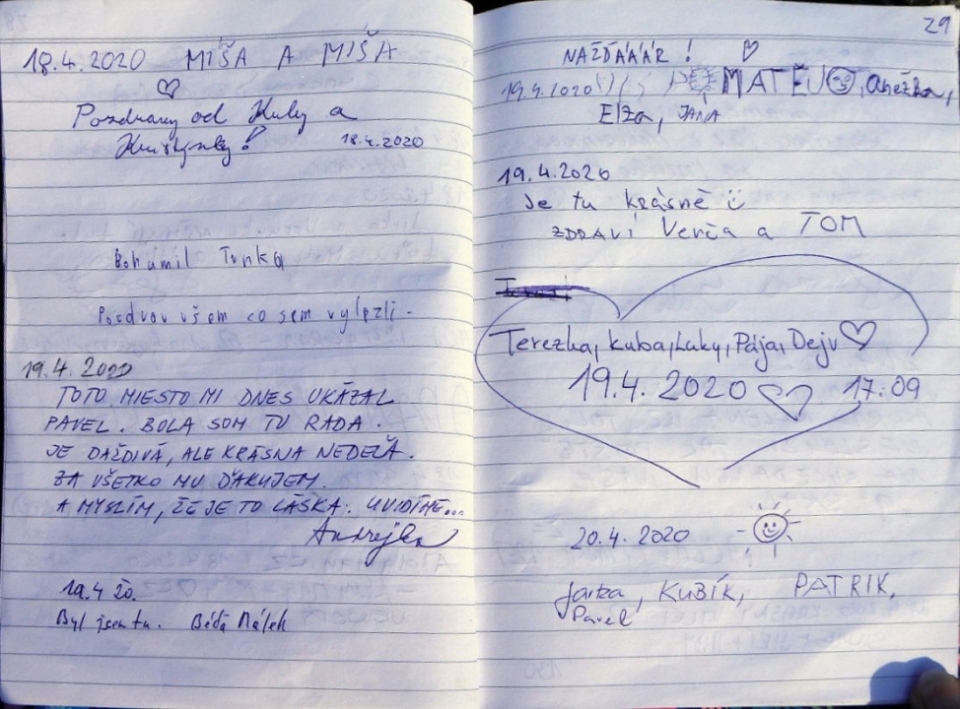 18.4.2020 MÍŠA A MÍŠA
Pozdravy od Kuly a
18.4.2020
Bohumil Trnka
Pozdrav všem co sem vylezli.
19.4.2020
TOTO MIESTO MI DNES UKÁZAL
PAVEL. BOLA SOM TU RADA.
JE DAŽDIVÁ, ALE KRÁSNA NEDEĽA.
ZA VŠETKO MU ĎAKUJEM.
A MYSLÍM, ŽE JE TO LÁSKA. UVIDÍME...
Andrejka
19.4 20.
Byl jsem tu. Béďa Málek
29
NAŽDÁÁÁR!
19.4.2020 MATĚJ, Anežka,
Elza, JANA
19.4.2020
Je tu krásně
ZDRAVÍ Verča a TOM
Terezka, Kuba, Luky, Pája, Dejv
19.4.2020 17:09
20.4.2020
Jarka, KUBÍK, PATRIK,
Pavel